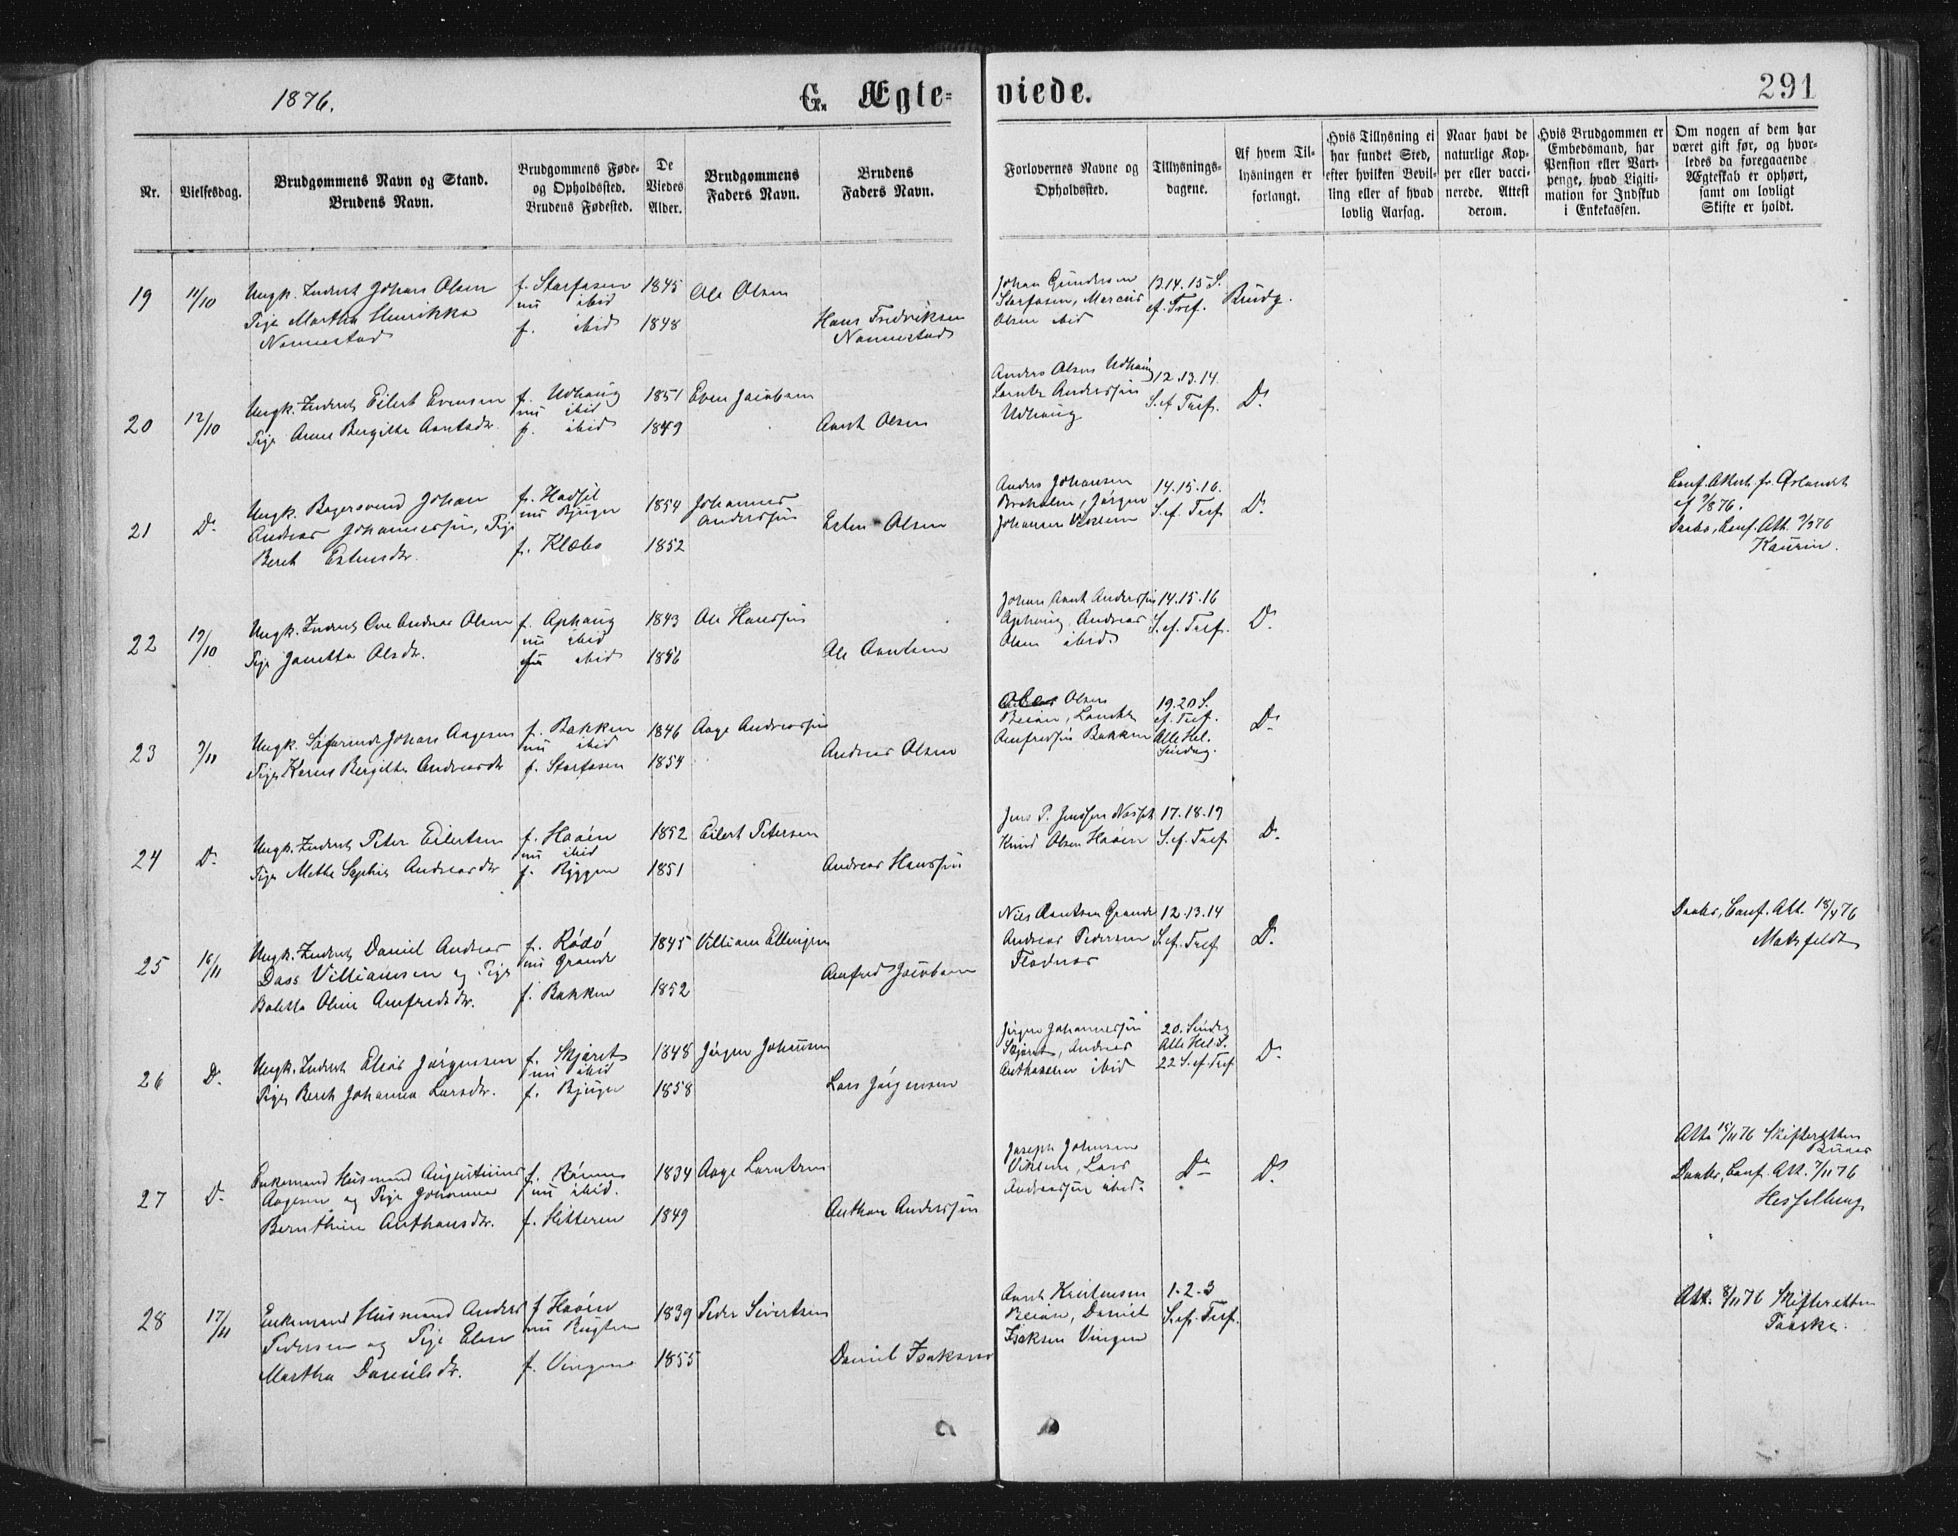 1876.
G. Ægte-
viede.
291
Nr.
Vielsesdag.
Brudgommens Navn og Stand.
Brudens Navn.
Brudgommens Føde-
og Opholdssted.
Brudens Fødested.
De
Viedes
Alder.
Brudgommens
Faders Navn.
Brudens
Faders Navn.
Forlovernes Navne og
Opholdssted.
Tillysnings-
dagene.
Af hvem Til-
lysningen er
forlangt.
Hvis Tillysning ei
har fundet Sted,
efter hvilken Bevil-
ling eller af hvad
lovlig Aarsag.
Naar havt de
naturlige Kop-
per eller vacci-
nerede. Attest
derom.
Hvis Brudgommen er
Embedsmand, har
Pension eller Vart-
penge, hvad Legiti-
mation for Indskud
i Enkekassen.
Om nogen af dem har
været gift før, og hvor-
ledes da foregaaende
Ægteskab er ophørt,
samt om lovligt
Skifte er holdt.
19
11/10
Ungk. Inderst Johan Olsen
Pige Martha Henrikka
Nonnestad
f. Storfosen
nu ibid
f. ibid
1845
1848
Ole Olsen
Hans Fredriksen
Nonnestad
Johan Gundersen
Storfosen, Marcus
Olsen ibid
13.14.15 S.
ef. Tref.
Brudg.
20
12/10
Ungk. Inderst Eilert Evensen
Pige Anne Bergitte Arntsdr.
f. Udhaug
nu ibid
f. ibid
1851
1849
Even Jacobsen
Arnt Olsen
Anders Olsen Udhaug
Lorntz Anderssøn
Udhaug
12.13.14.
S. ef. Tref.
Do
21
Do
Ungk. Bagersvend Johan
Andreas Johannessøn, Pige
Beret Estensdr.
f. Hadsel
nu Bjugn
f. Klæbo
1854
1852
Johannes
Anderssøn
Esten Olsen
Anders Johansen
Broholm, Jørgen
Johansen
14.15.16.
S. ef. Tref
Do
Conf. Attest fr. Ørlandet
Daabs, Conf. Att.
Kaurin.
22
19/10
Ungk. Inderst Ove Andreas Olsen
Pige Janetta Olsdr.
f. Ophaug
nu ibid
ibid
1843
1856
Ole Hanssøn
Ole Arntsen
Johan Arnt Anderssøn
Ophaug, Andreas
Olsen ibid.
14.15.16
S. ef. Tref.
Do
23
9/11
Ungk. Søfarende Johan Aagesen
Pige Karen Bergitte Andreasdr
f. Bakken
nu ibid
f. Storfosen
1846
1854
Aage Andreassøn
Andreas Olsen
Olsen
Beian, Lorentz
Amfredsøn Bakken
19.20 S.
ef. Tref.
Alle Hel.
Søndag.
Do
24
Do
Ungk. Inderst Peter Eilertsen
Pige Mette Sophie Andreasdr
f. Haøen
nu ibid
f. Ryggen
1852
1851
Eilert Petersen
Andreas Hanssøn
Jens P. Jenssen
Knud Olsen Haøen
17.18.19
S. ef. Tref
Do
25
16/11
Ungk. Inderst Daniel Andreas
Dass Villiamsen og Pige
Boletta Oline Amfredsdr.
f. Rødø
nu Grande
f. Bakken
1845
1852
Villiam Ellingsen
Amfred Jacobsen
Nils Arntsen Grande
Andreas Pedersen
Flodnes
12.13.14
S. ef. Tref
Do
Daabs, Conf. Att. 18/4 76
Motzfeldt
26
Do
Ungk. Inderst Elias Jørgensen
Pige Beret Johanna Larsdr.
f. Skjøret
nu ibid
f. Bjugn
1848
1858
Jørgen Johansen
Lars Jørgensen
Jørgen Johannessøn
Skjøret, Andreas
ibid
20. Søndag
Alle Hel. S.
22 S. ef. Tref
Do
27
Do
Enkemand Husmand Augustinus
Aagesen og Pige Johanna
Bernthine Anthonsdr.
f.
nu ibid.
f. Hitteren
1834
1849
Aage Lorntzen
Anthon Anderssøn
Joseph Johnsen
Viklem, Lars
Andreassøn ibid.
Do
Do
Att. 15/11 76 Skifteretten
Daabs, Conf. Att. 7/11 76
Hesselberg
28
17/11
Enkemand Husmand Anders
Pedersen og Pige Elen
Martha Danielsdr.
f Haøen
nu
f. Vingen
1839
1855
Peder Sivertsen
Daniel Isaksen
Arnt Kristensen
Beian, Daniel
Isaksen Vingen
1-2-3
S. ef. Tref.
Att. 8/11 76 Skifteretten